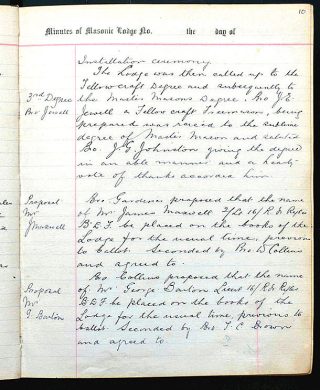 10
Minutes of Masonic Lodge No. the day of
Installation ceremony
The Lodge was then called up to the
Fellowcraft Degree and subsequently to
3rd Degree the Master Masons Degree, Bro J.E.
Bro Jewell Jewell a Fellow craft Freemason, being
prepared was raised to the sublime
degree of Master Mason and saluted
Bro J.G. Johnston giving the degree
in an able manner and a hearty
vote of thanks accorded him
Proposal Bro. Gardener proposed that the name
Mr of Mr James Maxwell 2/Lt 16/R. Ir Rifles
J Maxwell B.E.F. be placed on the books of the
Lodge for the usual time, previous
to ballot. Seconded by Bro. D Collins
and agreed to.
Bro Collins proposed that the name
Proposal of Mr George Barton Lieut 16/R. Ir Rifles
Mr B.E.F. be placed on the books of the
G. Barton Lodge for the usual time, previous to
ballot. Seconded by Bro. T. C. Down
and agreed to